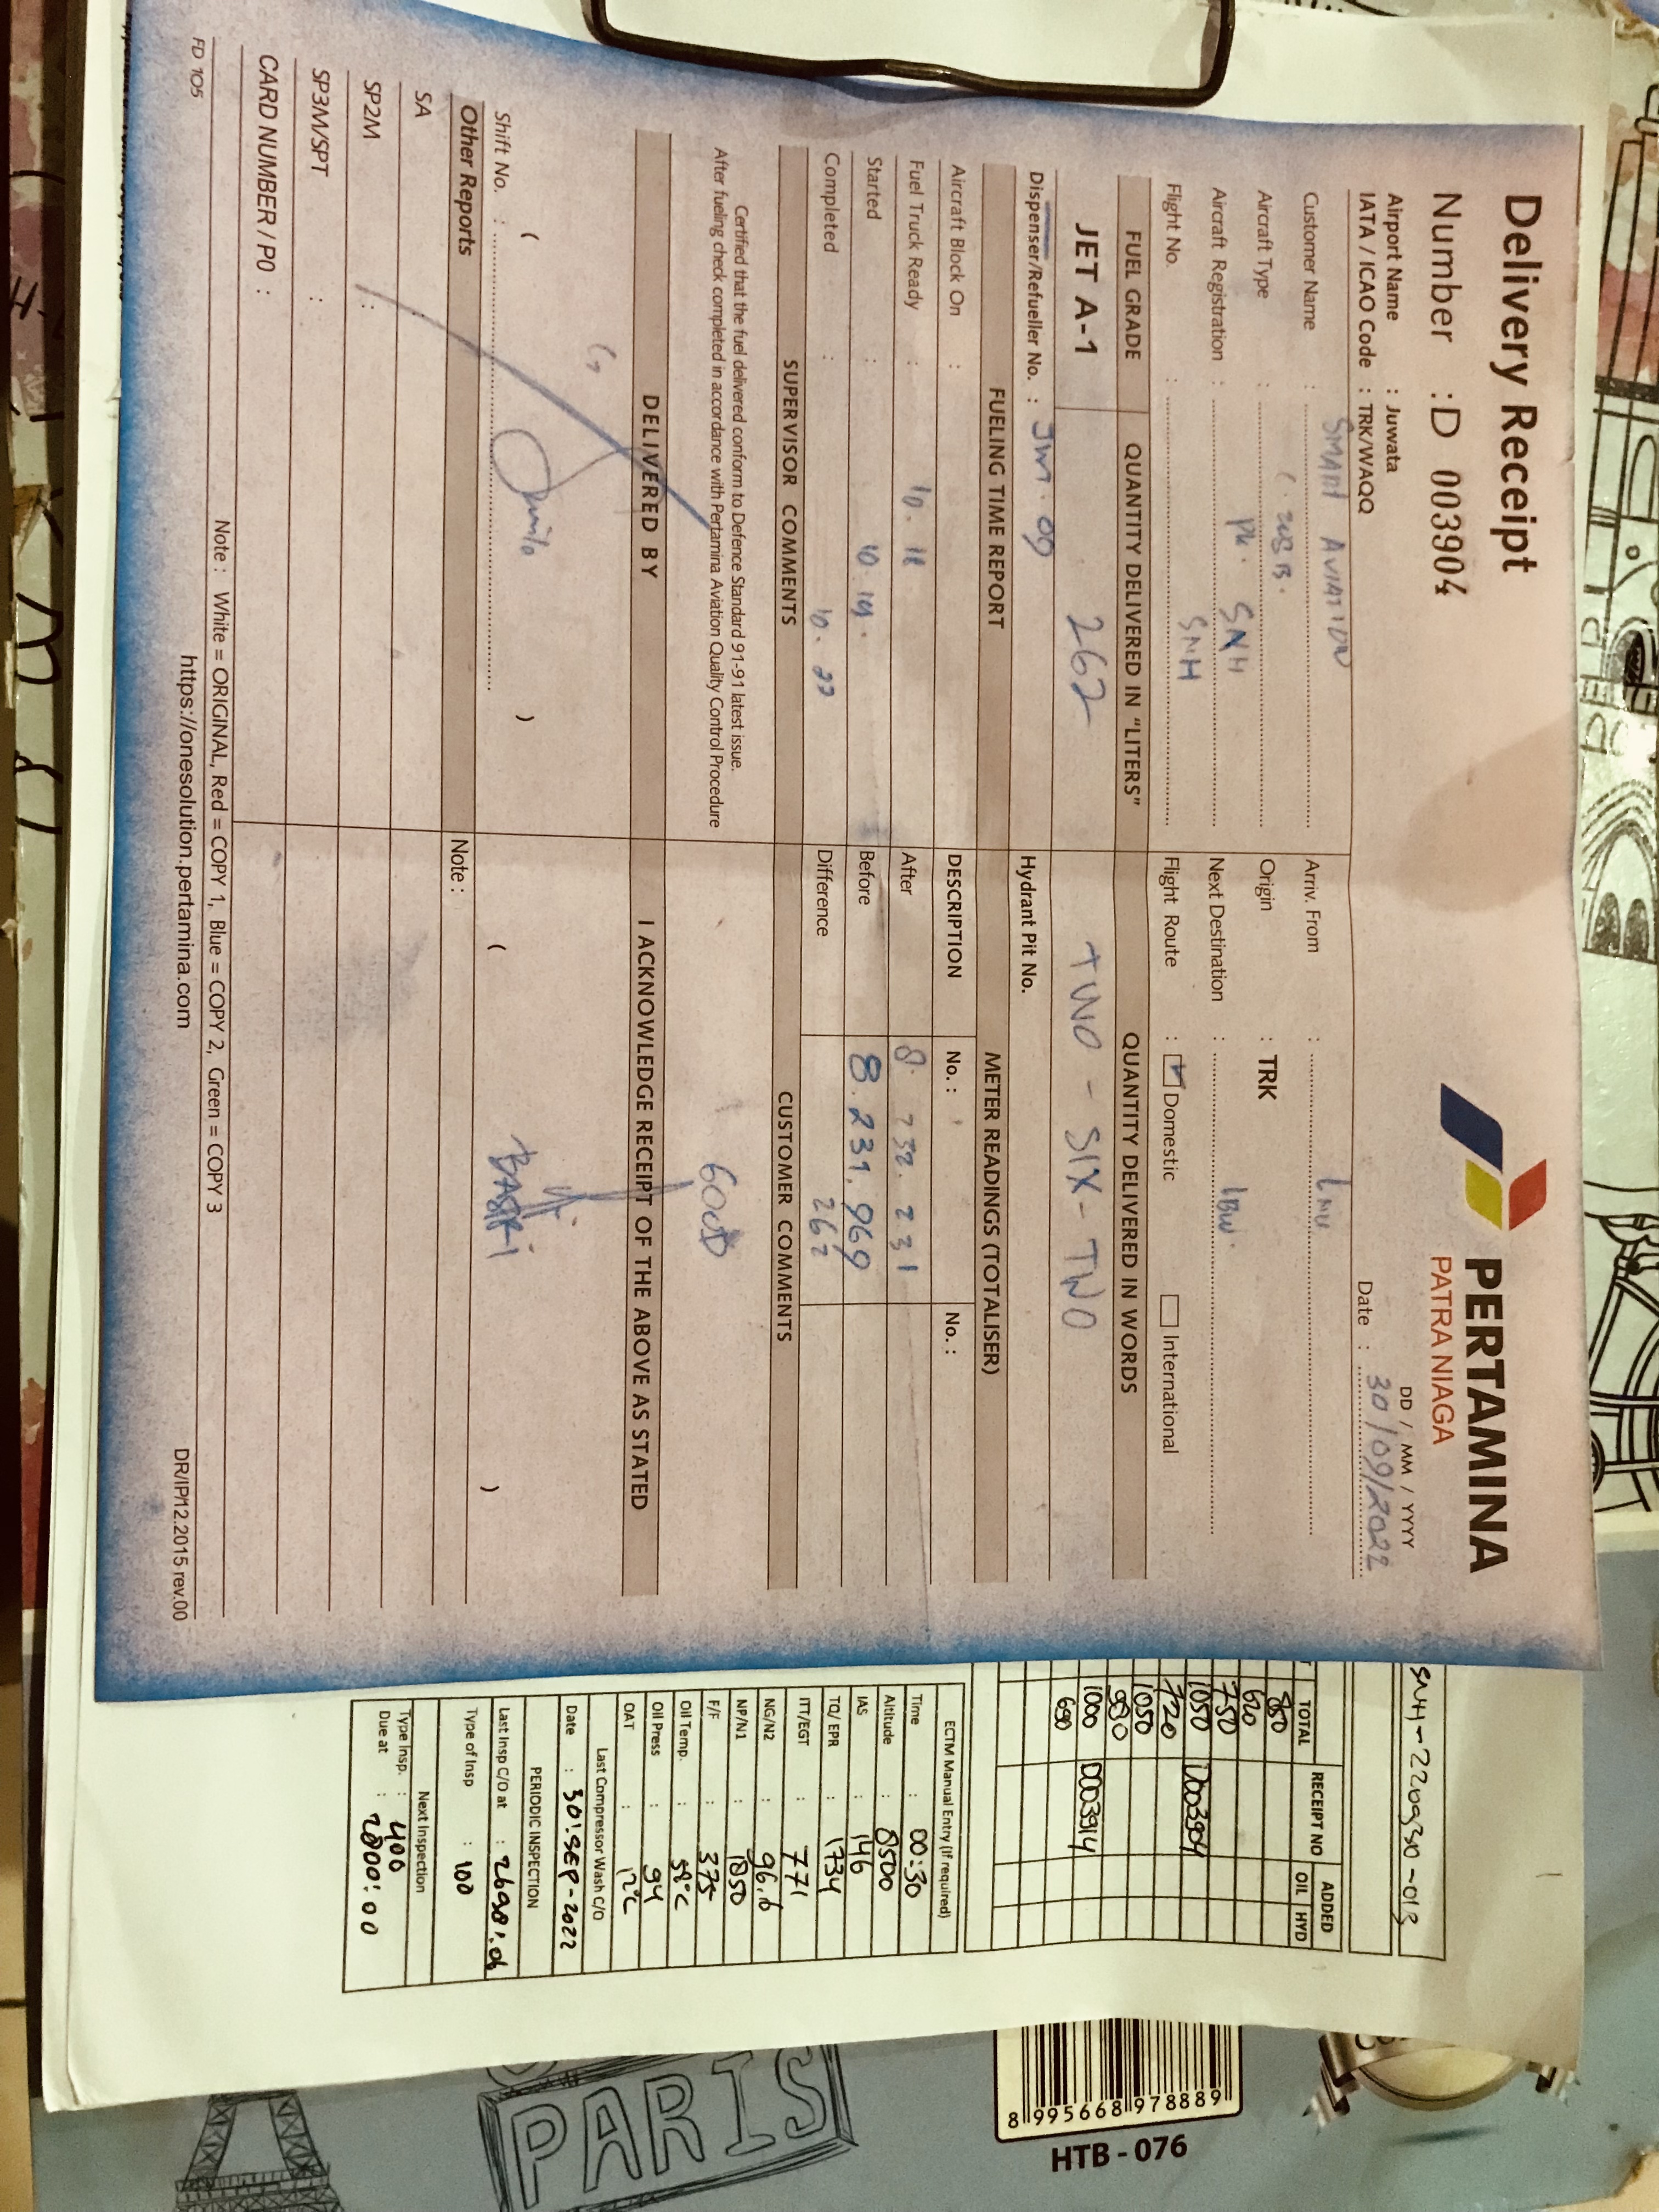 Delivery Receipt
PERTAMINA
PATRA NIAGA
Number : D 003904
DD / MM / YYYY
Airport Name : Juwata
IATA / ICAO Code : TRK/WAQQ
Date : 30/09/2022
Customer Name : SMART AVIATION
Arriv. From : LNU
Aircraft Type : C 208 B.
Origin : TRK
Aircraft Registration : PK. SNH
Next Destination : LBW.
Flight No. : SNH
Flight Route : Domestic International
FUEL GRADE QUANTITY DELIVERED IN "LITERS" QUANTITY DELIVERED IN WORDS
JET A-1 262 TWO - SIX - TWO
Dispenser/Refueller No. : JW. 09
Hydrant Pit No.
FUELING TIME REPORT METER READINGS (TOTALISER)
Aircraft Block On :
DESCRIPTION No. : No. :
Fuel Truck Ready :
After 8. 232. 231
Started : 10. 19.
Before 8. 231. 969
Completed : 10. 22
Difference 262
SUPERVISOR COMMENTS CUSTOMER COMMENTS
Certified that the fuel delivered conform to Defence Standard 91-91 latest issue.
After fueling check completed in accordance with Pertamina Aviation Quality Control Procedure
GOOD
DELIVERED BY I ACKNOWLEDGE RECEIPT OF THE ABOVE AS STATED
BASRI
Shift No. :
Other Reports
Note :
SA :
SP2M :
SP3M/SPT :
CARD NUMBER / PO :
Note : White = ORIGINAL, Red = COPY 1, Blue = COPY 2, Green = COPY 3
FD 105
https://onesolution.pertamina.com
DR/IP/12.2015 rev.00
SNH-220930-013
TOTAL RECEIPT NO ADDED
OIL HYD
850
620
750
1050 D003904
720
1050
980
1000 D003914
690
ECTM Manual Entry (If required)
Time : 00:30
Altitude : 8500
IAS : 146
TQ/ EPR : 1734
ITT/EGT : 771
NG/N2 : 96.6
NP/N1 : 1850
F/F : 375
Oil Temp. : 58°C
Oil Press : 94
OAT : 12°C
Last Compressor Wash C/O
Date : 30.SEP-2022
PERIODIC INSPECTION
Last Insp C/O at : 2698!.06
Type of Insp : 100
Next Inspection
Type Insp. : 400
Due at : 2800!.00
PARIS
8 995668 978889
HTB - 076